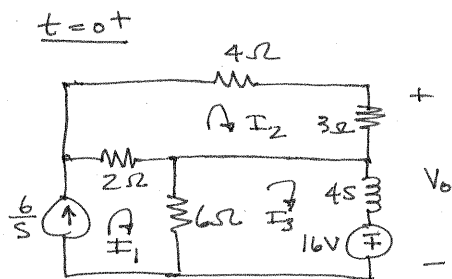 t=0⁺
4Ω
+
I₂
3Ω
2Ω
6/S
I₁
6Ω
I₃
4S
V₀
16V
∓
−